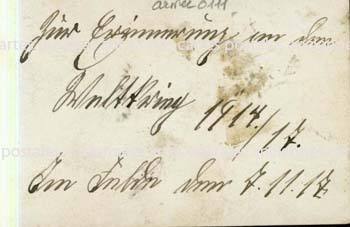 Zur Erinnerung an den
Weltkrieg 1914/17.
Im Felde den 7.11.17.